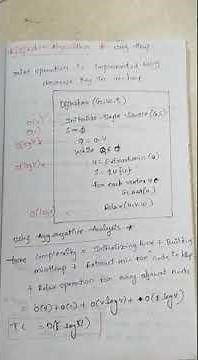 Dijkstra Algorithm * using Heap
relax operation is implemented using
decrease key in heap
Dijkstra (G, w, s)
Initialize-Single-Source (G, s)
S = ϕ
Q = G.V
while Q ≠ ϕ
u = Extractmin (Q)
S = S ∪ {u}
for each vertex v ∈
G.Adj[u]
Relax (u, v, w)
using Aggregative Analysis
time complexity = Initializing time + Building
minHeap + Extract min for node in Heap
+ Relax operation for every adjacent node
= O(V) + O(V) + O(V log V) + O(E log V)
T.C = O(E log V)